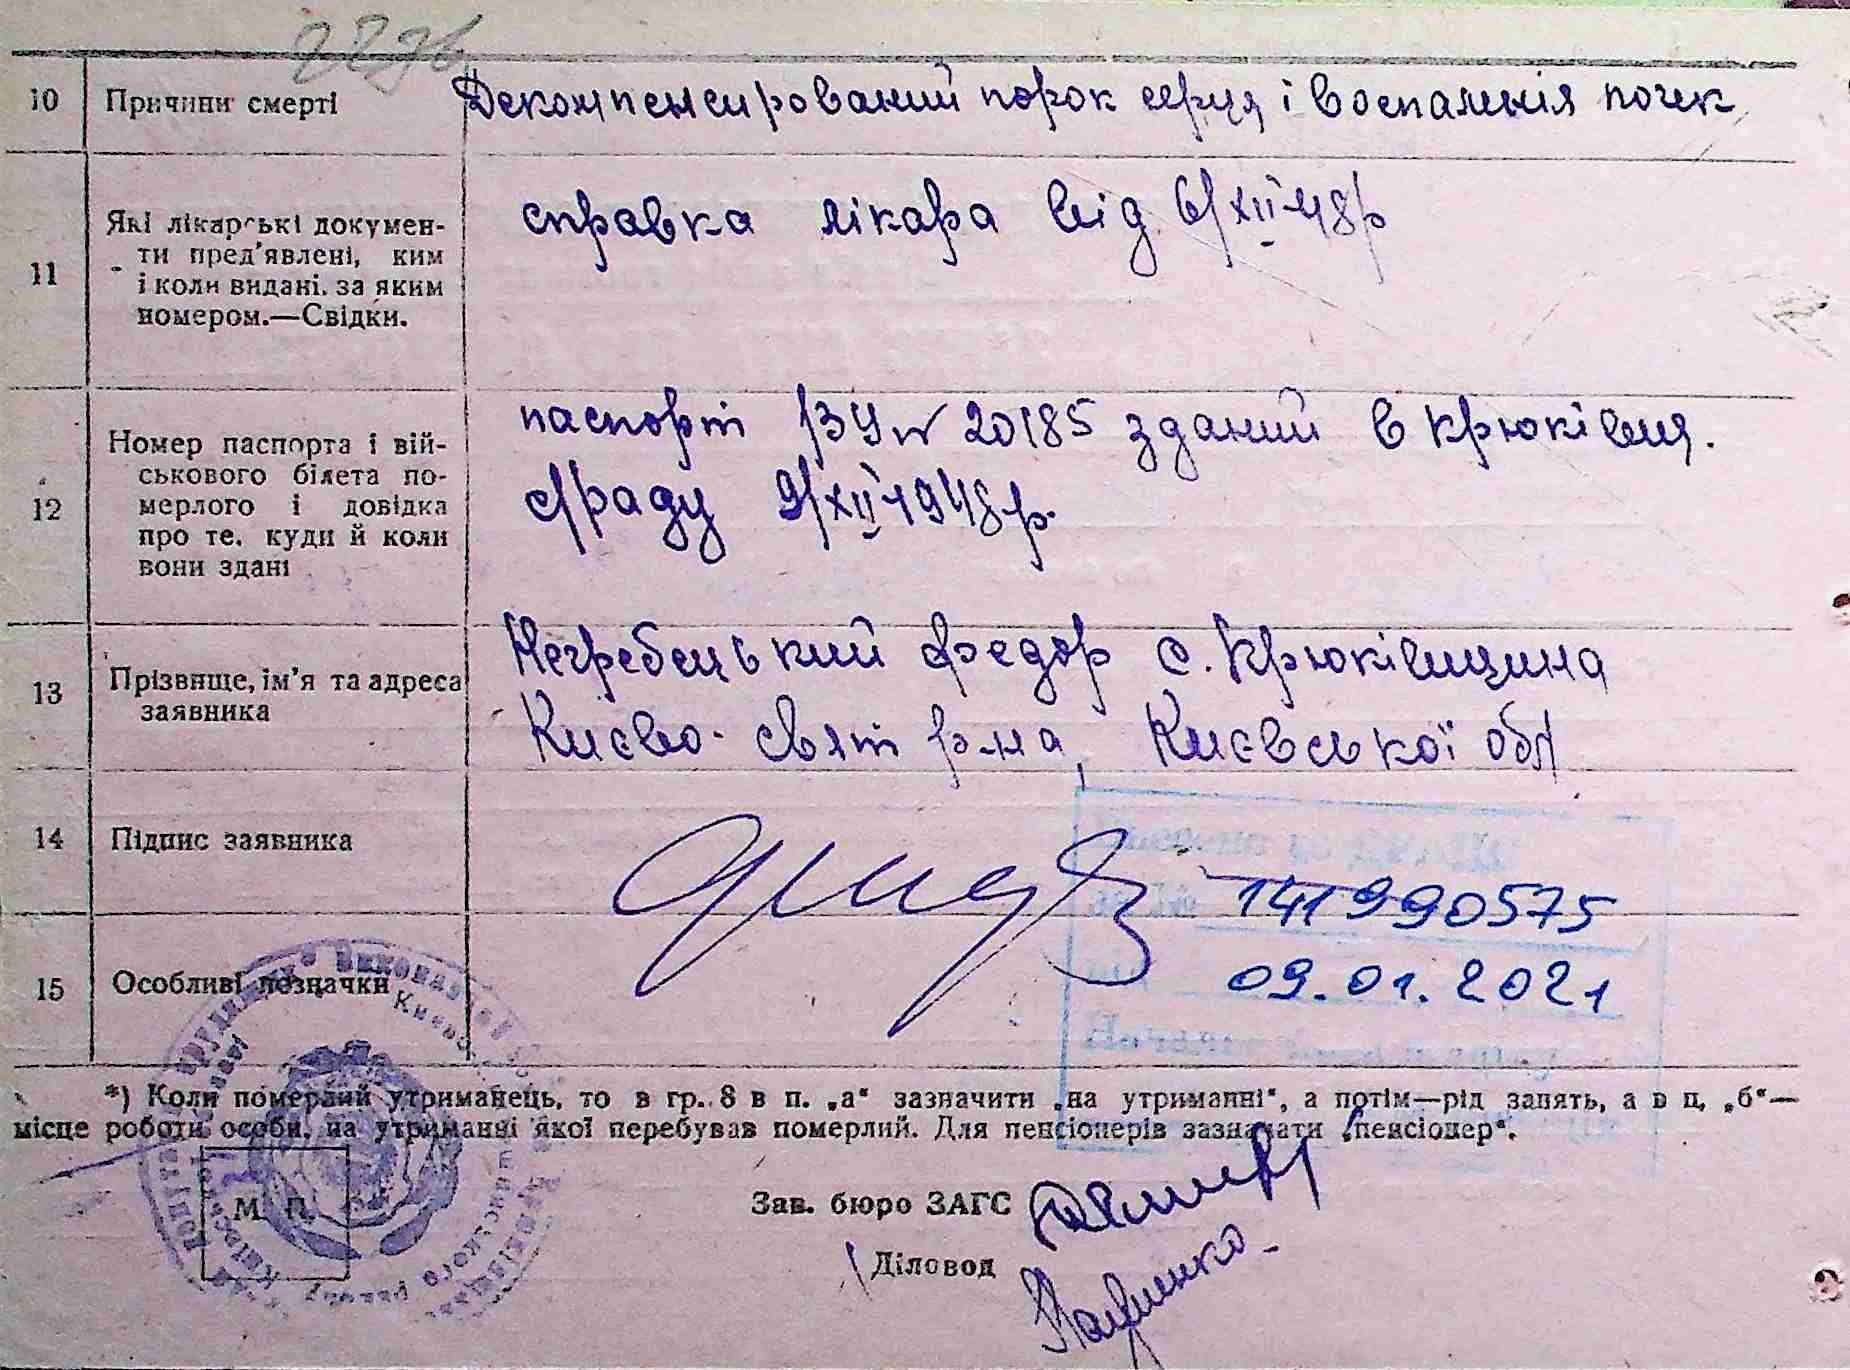 2276
10 Причини смерті Декомпенсирований порок серця і воспаленія почек
11 Які лікарські докумен-
ти пред'явлені, ким
і коли видані, за яким
номером.—Свідки.
справка лікара від 6/XII-48р
12 Номер паспорта і вій-
ськового білета по-
мерлого і довідка
про те, куди й коли
вони здані
паспорт №20185 зданий в Крюківщ.
с/раду 9/XII-1948р.
13 Прізвище, ім'я та адреса
заявника
Негребецький Федор с. Крюківщина
Києво-Свят р-на, Київської обл
14 Підпис заявника
141990575
15 Особливі позначки
09.01.2021
*) Коли померлий утриманець, то в гр. 8 в п. „а" зазначити „на утриманні", а потім—рід занять, а в п. „б"—
місце роботи особи, на утриманні якої перебував померлий. Для пенсіонерів зазначати „пенсіонер".
М. П.
Зав. бюро ЗАГС
Діловод